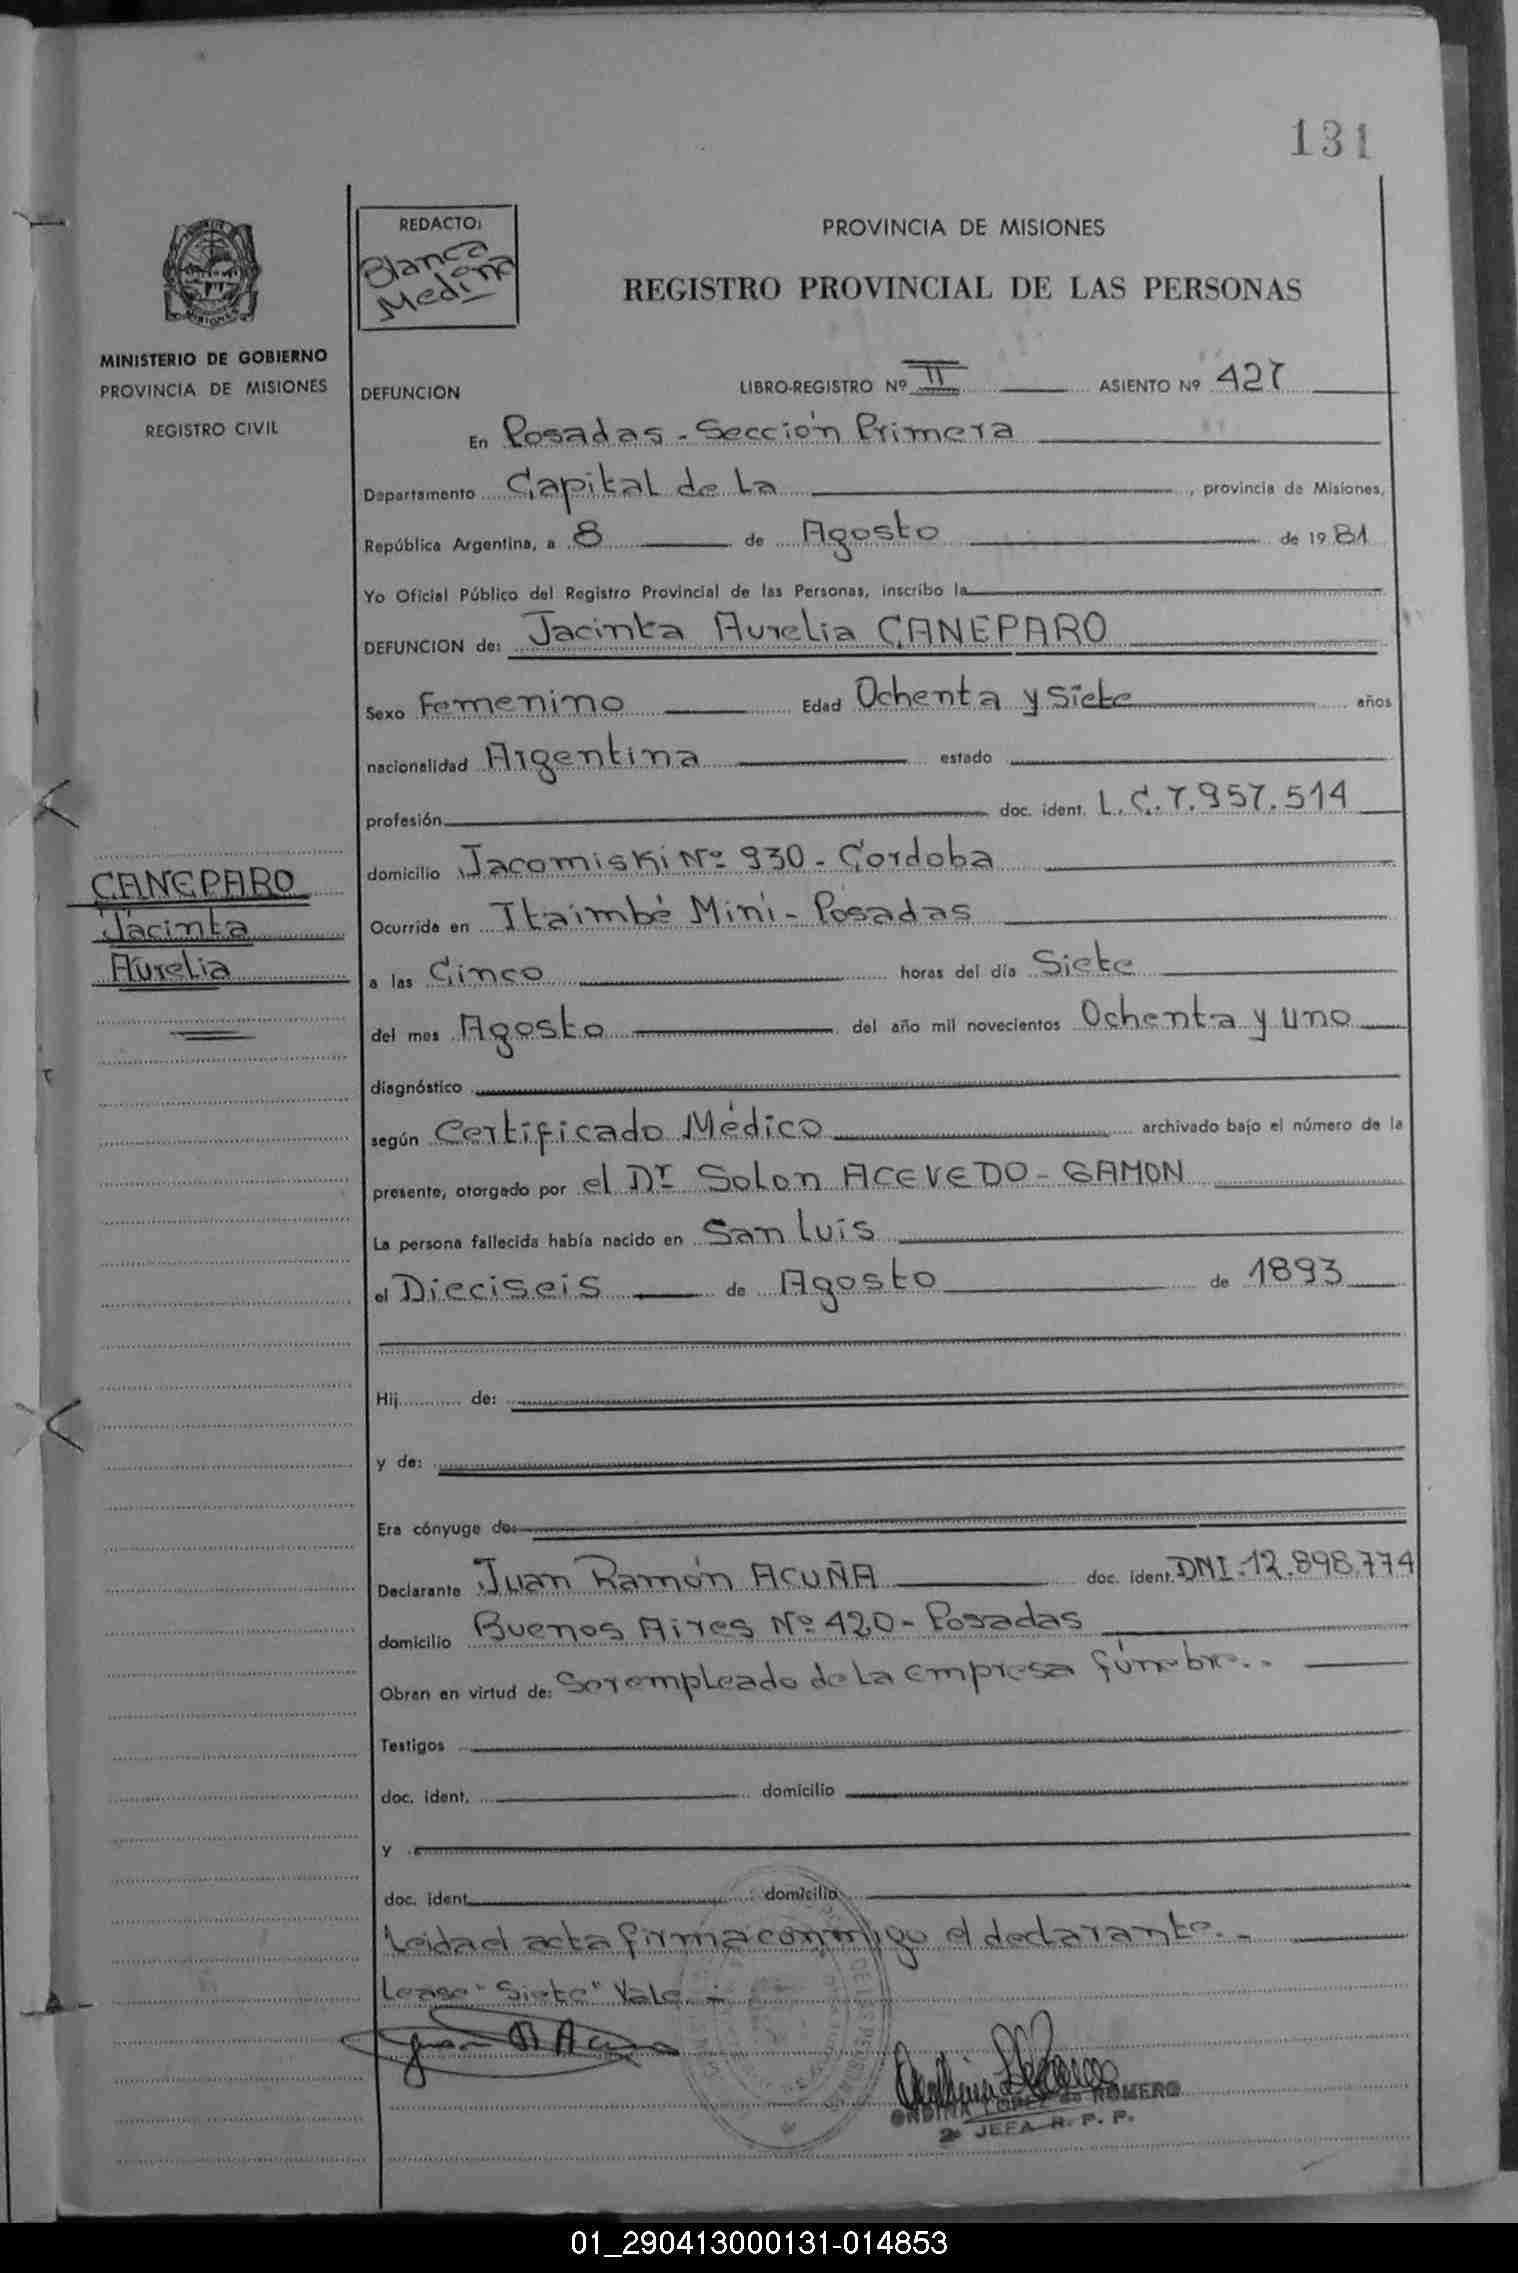 131
REDACTO:
Blanca
Medina
PROVINCIA DE MISIONES
REGISTRO PROVINCIAL DE LAS PERSONAS
MINISTERIO DE GOBIERNO
PROVINCIA DE MISIONES
REGISTRO CIVIL
DEFUNCION LIBRO-REGISTRO Nº II ASIENTO Nº 427
En Posadas - Sección Primera
Departamento Capital de La, provincia de Misiones,
República Argentina, a 8 de Agosto de 1981
Yo Oficial Público del Registro Provincial de las Personas, inscribo la
DEFUNCION de: Jacinta Aurelia CANEPARO
Sexo Femenino Edad Ochenta y Siete años
nacionalidad Argentina estado
profesión doc. ident. L.C.7.957.514
domicilio Jacomiski Nº 930 - Cordoba
CANEPARO
Jacinta
Aurelia
Ocurrida en Itaimbé Mini - Posadas
a las Cinco horas del día Siete
del mes Agosto del año mil novecientos Ochenta y uno
diagnóstico
según Certificado Médico archivado bajo el número de la
presente, otorgado por el Dr Solon ACEVEDO - GAMON
La persona fallecida había nacido en San Luis
el Dieciseis de Agosto de 1893
Hij de:
y de:
Era cónyuge de:
Declarante Juan Ramón ACUÑA doc. ident. DNI.12.898.774
domicilio Buenos Aires Nº 420 - Posadas
Obran en virtud de: Ser empleado de la empresa fúnebre. -
Testigos
doc. ident. domicilio
y
doc. ident domicilio
Leida el acta firma conmigo el declarante. -
Lease "Siete" Vale -
ONDINA LOPEZ de ROMERO
2º JEFA R. P. P.
01_290413000131-014853